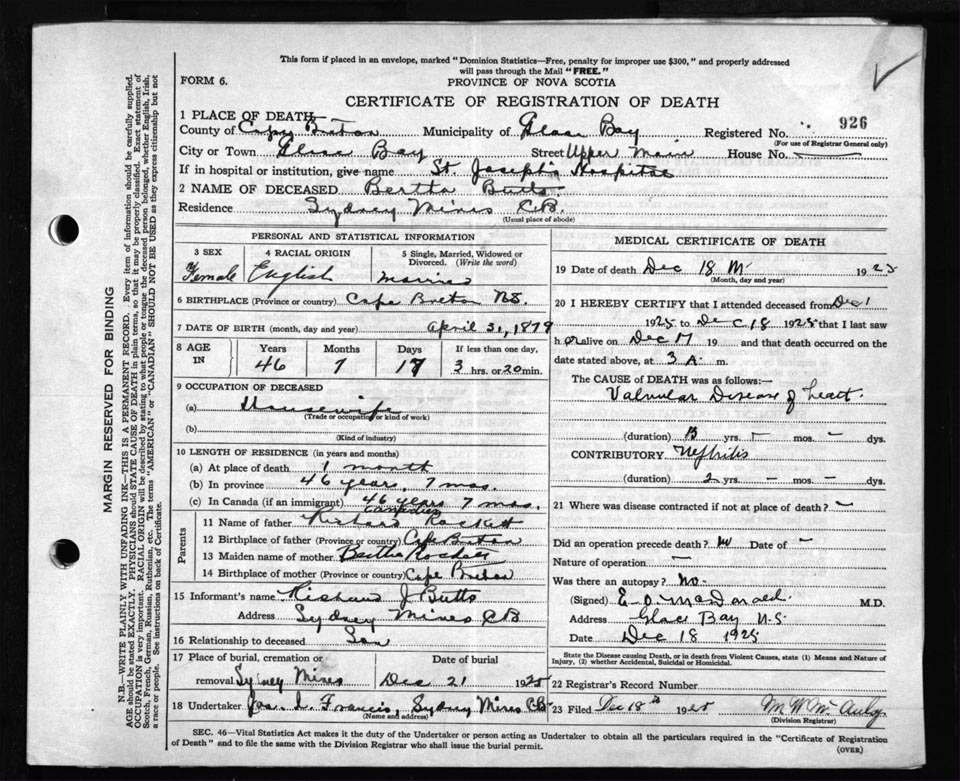 This form if placed in an envelope, marked "Dominion Statistics—Free, penalty for improper use $300," and properly addressed
will pass through the Mail "FREE."
FORM 6.
PROVINCE OF NOVA SCOTIA
CERTIFICATE OF REGISTRATION OF DEATH
1 PLACE OF DEATH—
County of Cape Breton Municipality of Glace Bay Registered No. 926
(For use of Registrar General only)
City or Town Glace Bay Street Upper Main House No. —
If in hospital or institution, give name St. Joseph's Hospital
2 NAME OF DECEASED Bertha Butts
Residence Sydney Mines C.B.
(Usual place of abode)
PERSONAL AND STATISTICAL INFORMATION
3 SEX Female
4 RACIAL ORIGIN English
5 Single, Married, Widowed or Divorced. (Write the word)
6 BIRTHPLACE (Province or country) Cape Breton N.S.
7 DATE OF BIRTH (month, day and year) April 31, 1879
8 AGE IN Years 46 Months 7 Days 17 If less than one day, 3 hrs. or 20 min.
9 OCCUPATION OF DECEASED
(a) Housewife
(Trade or occupation or kind of work)
(b)
(Kind of industry)
10 LENGTH OF RESIDENCE (in years and months)
(a) At place of death 1 month
(b) In province 46 years, 7 mos.
(c) In Canada (if an immigrant) 46 years 7 mos.
Parents
11 Name of father Rockett
12 Birthplace of father (Province or country) Cape Breton
13 Maiden name of mother Bertha
14 Birthplace of mother (Province or country) Cape Breton
15 Informant's name J Butts
Address Sydney Mines CB
16 Relationship to deceased Son
17 Place of burial, cremation or removal Sydney Mines
Date of burial Dec 21 1925
18 Undertaker Jas. L. Francis, Sydney Mines CB
(Name and address)
MEDICAL CERTIFICATE OF DEATH
19 Date of death Dec 18 1925
(Month, day and year)
20 I HEREBY CERTIFY that I attended deceased from Dec 1
1925 to Dec 18 1925 that I last saw
h er alive on Dec 17 19 and that death occurred on the
date stated above, at 3 A. m.
The CAUSE OF DEATH was as follows:—
Valvular Disease of heart.
(duration) yrs. — mos. — dys.
CONTRIBUTORY Nephritis
(duration) 2 yrs. — mos. — dys.
21 Where was disease contracted if not at place of death? —
Did an operation precede death? no Date of —
Nature of operation —
Was there an autopsy? no.
(Signed) E. O. McDonald. M.D.
Address Glace Bay N.S
Date Dec 18 1925
State the Disease causing Death, or in death from Violent Causes, state (1) Means and Nature of
Injury, (2) whether Accidental, Suicidal or Homicidal.
22 Registrar's Record Number
23 Filed Dec 18th 1925 M W McAulay
(Division Registrar)
SEC. 46—Vital Statistics Act makes it the duty of the Undertaker or person acting as Undertaker to obtain all the particulars required in the "Certificate of Registration
of Death" and to file the same with the Division Registrar who shall issue the burial permit.
(OVER)
MARGIN RESERVED FOR BINDING
N.B.—WRITE PLAINLY WITH UNFADING INK—THIS IS A PERMANENT RECORD. Every item of information should be carefully supplied.
AGE should be stated EXACTLY. PHYSICIANS should STATE CAUSE OF DEATH in plain terms, so that it may be properly classified. Exact statement of
OCCUPATION is very important. RACIAL ORIGIN will be described by stating to what people or tongue the deceased person belonged, whether English, Irish,
Scotch, French, German, Russian, Ruthenian, etc. The terms "AMERICAN" or "CANADIAN" SHOULD NOT BE USED as they express citizenship but not
a race or people. See instructions on back of Certificate.